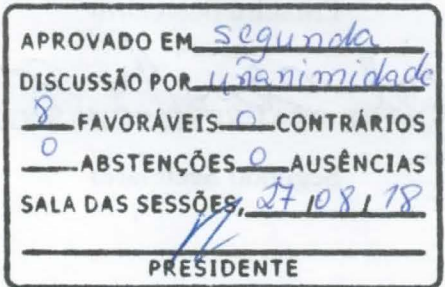 APROVADO EM segunda
DISCUSSÃO POR unanimidade
8 FAVORÁVEIS 0 CONTRÁRIOS
0 ABSTENÇÕES 0 AUSÊNCIAS
SALA DAS SESSÕES, 27 / 08 / 18
PRESIDENTE